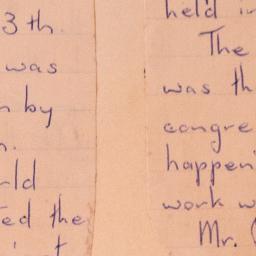 3th.
was
by
ed the
held
The
was th
congre
happen
work w
Mr.